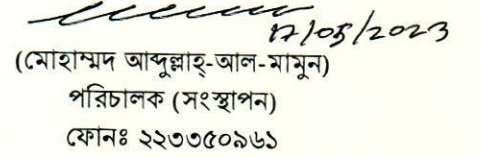 17/05/2023
(মোহাম্মদ আব্দুল্লাহ্-আল-মামুন)
পরিচালক (সংস্থাপন)
ফোনঃ ২২৩৩৫০৯৬১